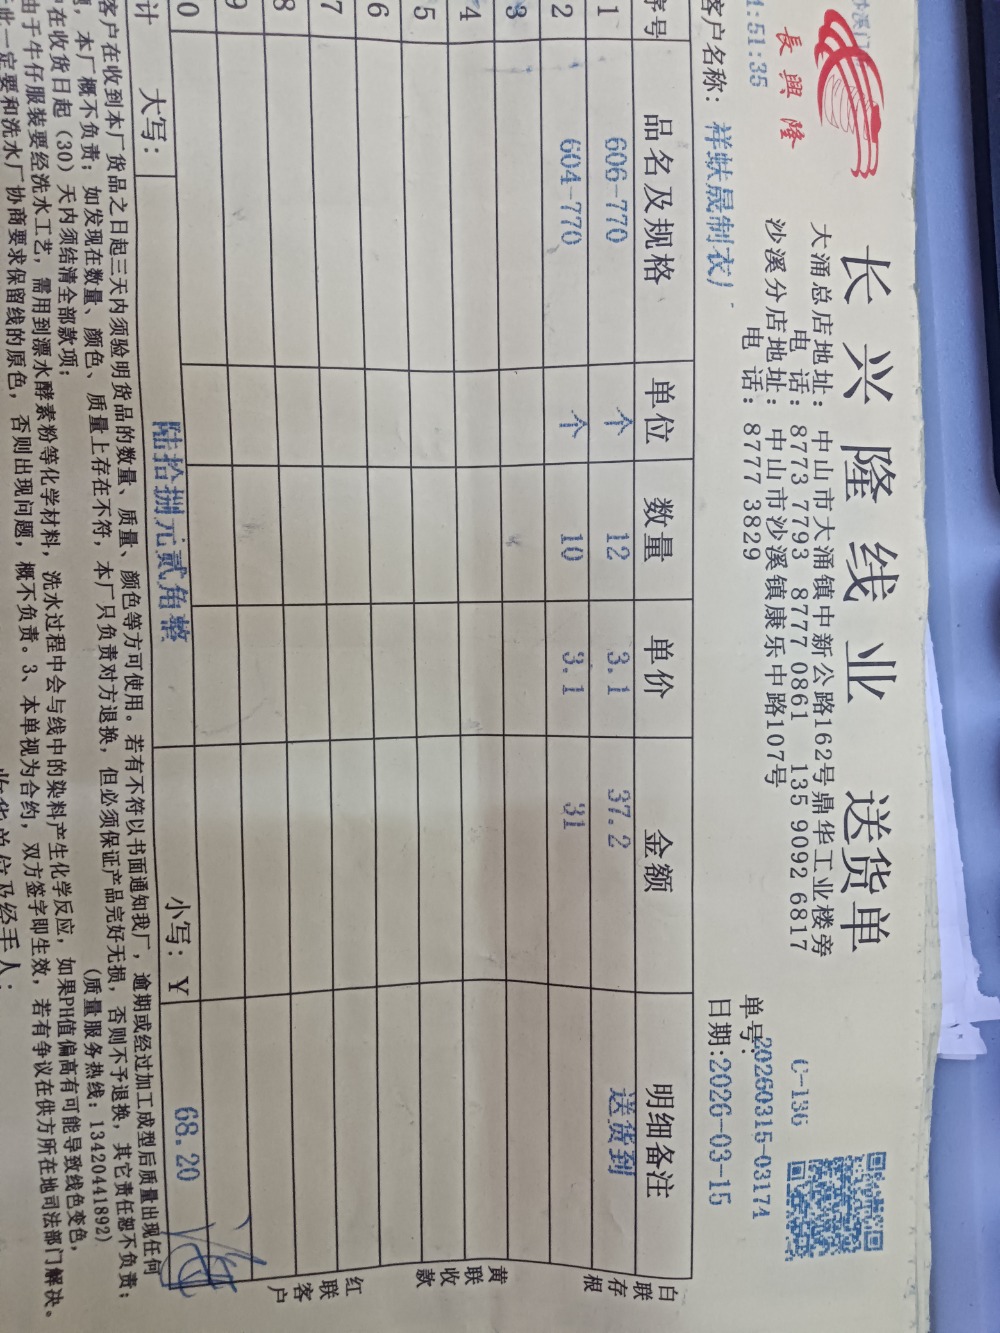 長興隆
长兴隆线业 送货单
大涌总店地址：中山市大涌镇中新公路162号鼎华工业楼旁
电话：8773 7793 8777 0861 135 9092 6817
沙溪分店地址：中山市沙溪镇康乐中路107号
电话：8777 3829
C-136
单号：20260315-03174
1:51:35
客户名称：祥蚨晟制衣厂
日期:2026-03-15
序号 品名及规格 单位 数量 单价 金额 明细备注
1 606-770 个 12 3.1 37.2 送货到
2 604-770 个 10 3.1 31
3
4
5
6
7
8
9
0
计 大写： 陆拾捌元贰角整 小写：Y 68.20
白联存根
黄联收款
红联客户
客户在收到本厂货品之日起三天内须验明货品的数量、质量、颜色等方可使用。若有不符以书面通知我厂，逾期或经过加工成型后质量出现任何
，本厂概不负责；如发现在数量、颜色、质量上存在不符，本厂只负责对方退换，但必须保证产品完好无损，否则不予退换，其它责任恕不负责；
在收货日起（30）天内须结清全部款项；
（质量服务热线：13420441892）
由于牛仔服装要经洗水工艺，需用到漂水酵素粉等化学材料，洗水过程中会与线中的染料产生化学反应，如果PH值偏高有可能导致线色变色，
此一定要和洗水厂协商要求保留线的原色，否则出现问题，概不负责。3、本单视为合约，双方签字即生效，若有争议在供方所在地司法部门解决。
收货单位及经手人：